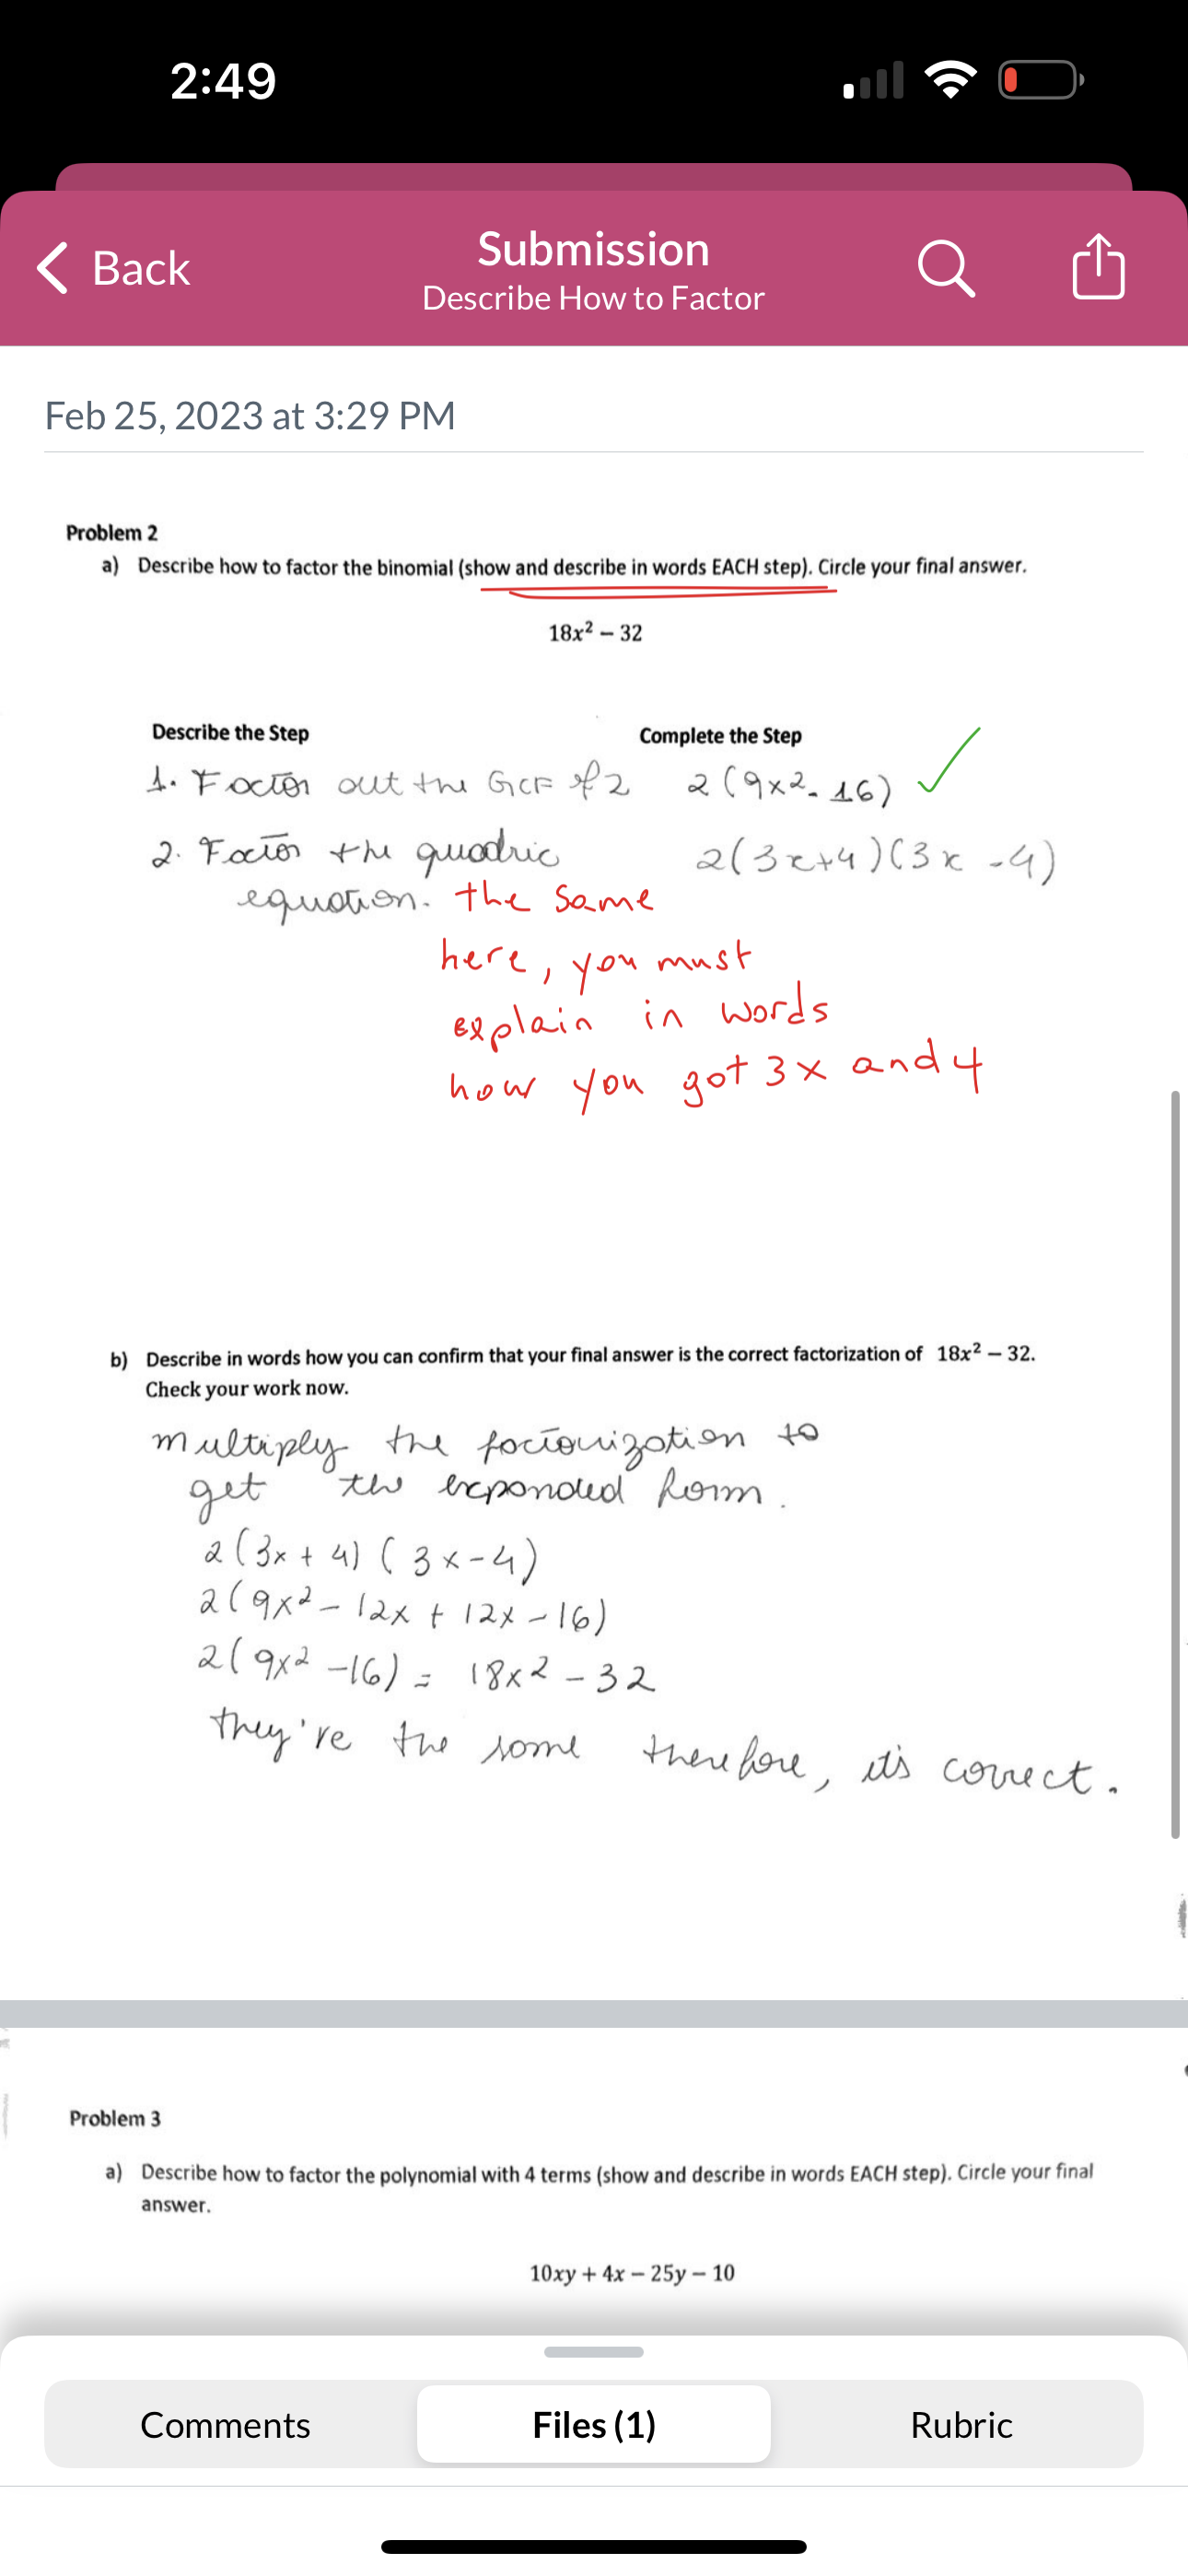 2:49
Back
Submission
Describe How to Factor
Feb 25, 2023 at 3:29 PM
Problem 2
a) Describe how to factor the binomial (show and describe in words EACH step). Circle your final answer.
18x² − 32
Describe the Step
Complete the Step
1. Factor out the GCF of 2
2(9x² - 16)
2. Factor the quadric
2(3x+4)(3x-4)
equation.
the same
here, you must
explain in words
how you got 3x and 4
b) Describe in words how you can confirm that your final answer is the correct factorization of 18x² − 32.
Check your work now.
multiply the factorization to
get the expanded form.
2(3x + 4) (3x-4)
2(9x² - 12x + 12x - 16)
2(9x² - 16) = 18x² - 32
they're the same therefore, it's correct.
Problem 3
a) Describe how to factor the polynomial with 4 terms (show and describe in words EACH step). Circle your final
answer.
10xy + 4x − 25y − 10
Comments
Files (1)
Rubric